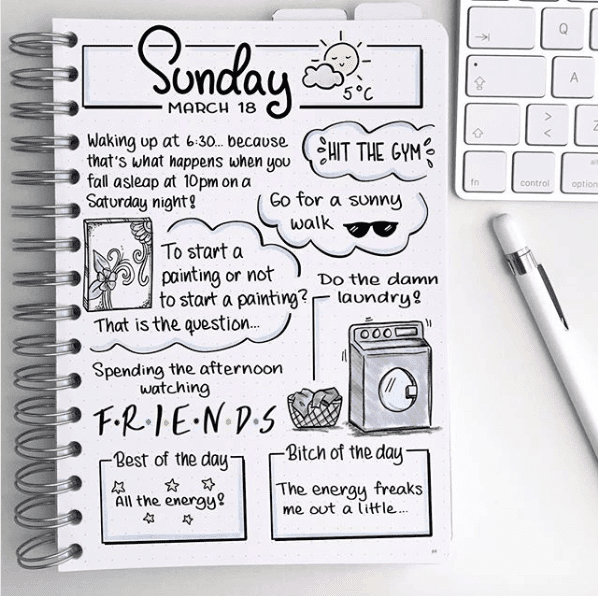 Sunday
MARCH 18
5°C
Waking up at 6:30... because
that's what happens when you
fall asleap at 10pm on a
Saturday night!
HIT THE GYM
Go for a sunny
walk
To start a
painting or not
to start a painting?
That is the question...
Do the damn
laundry!
Spending the afternoon
watching
F•R•I•E•N•D•S
Best of the day
All the energy!
Bitch of the day
The energy freaks
me out a little...
Q
A
>
<
Z
fn
control
alt
option